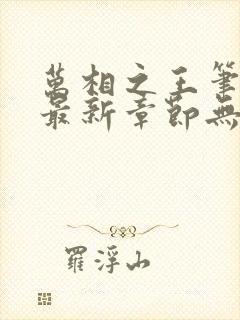 萬相之王筆
最新章節無
羅浮山